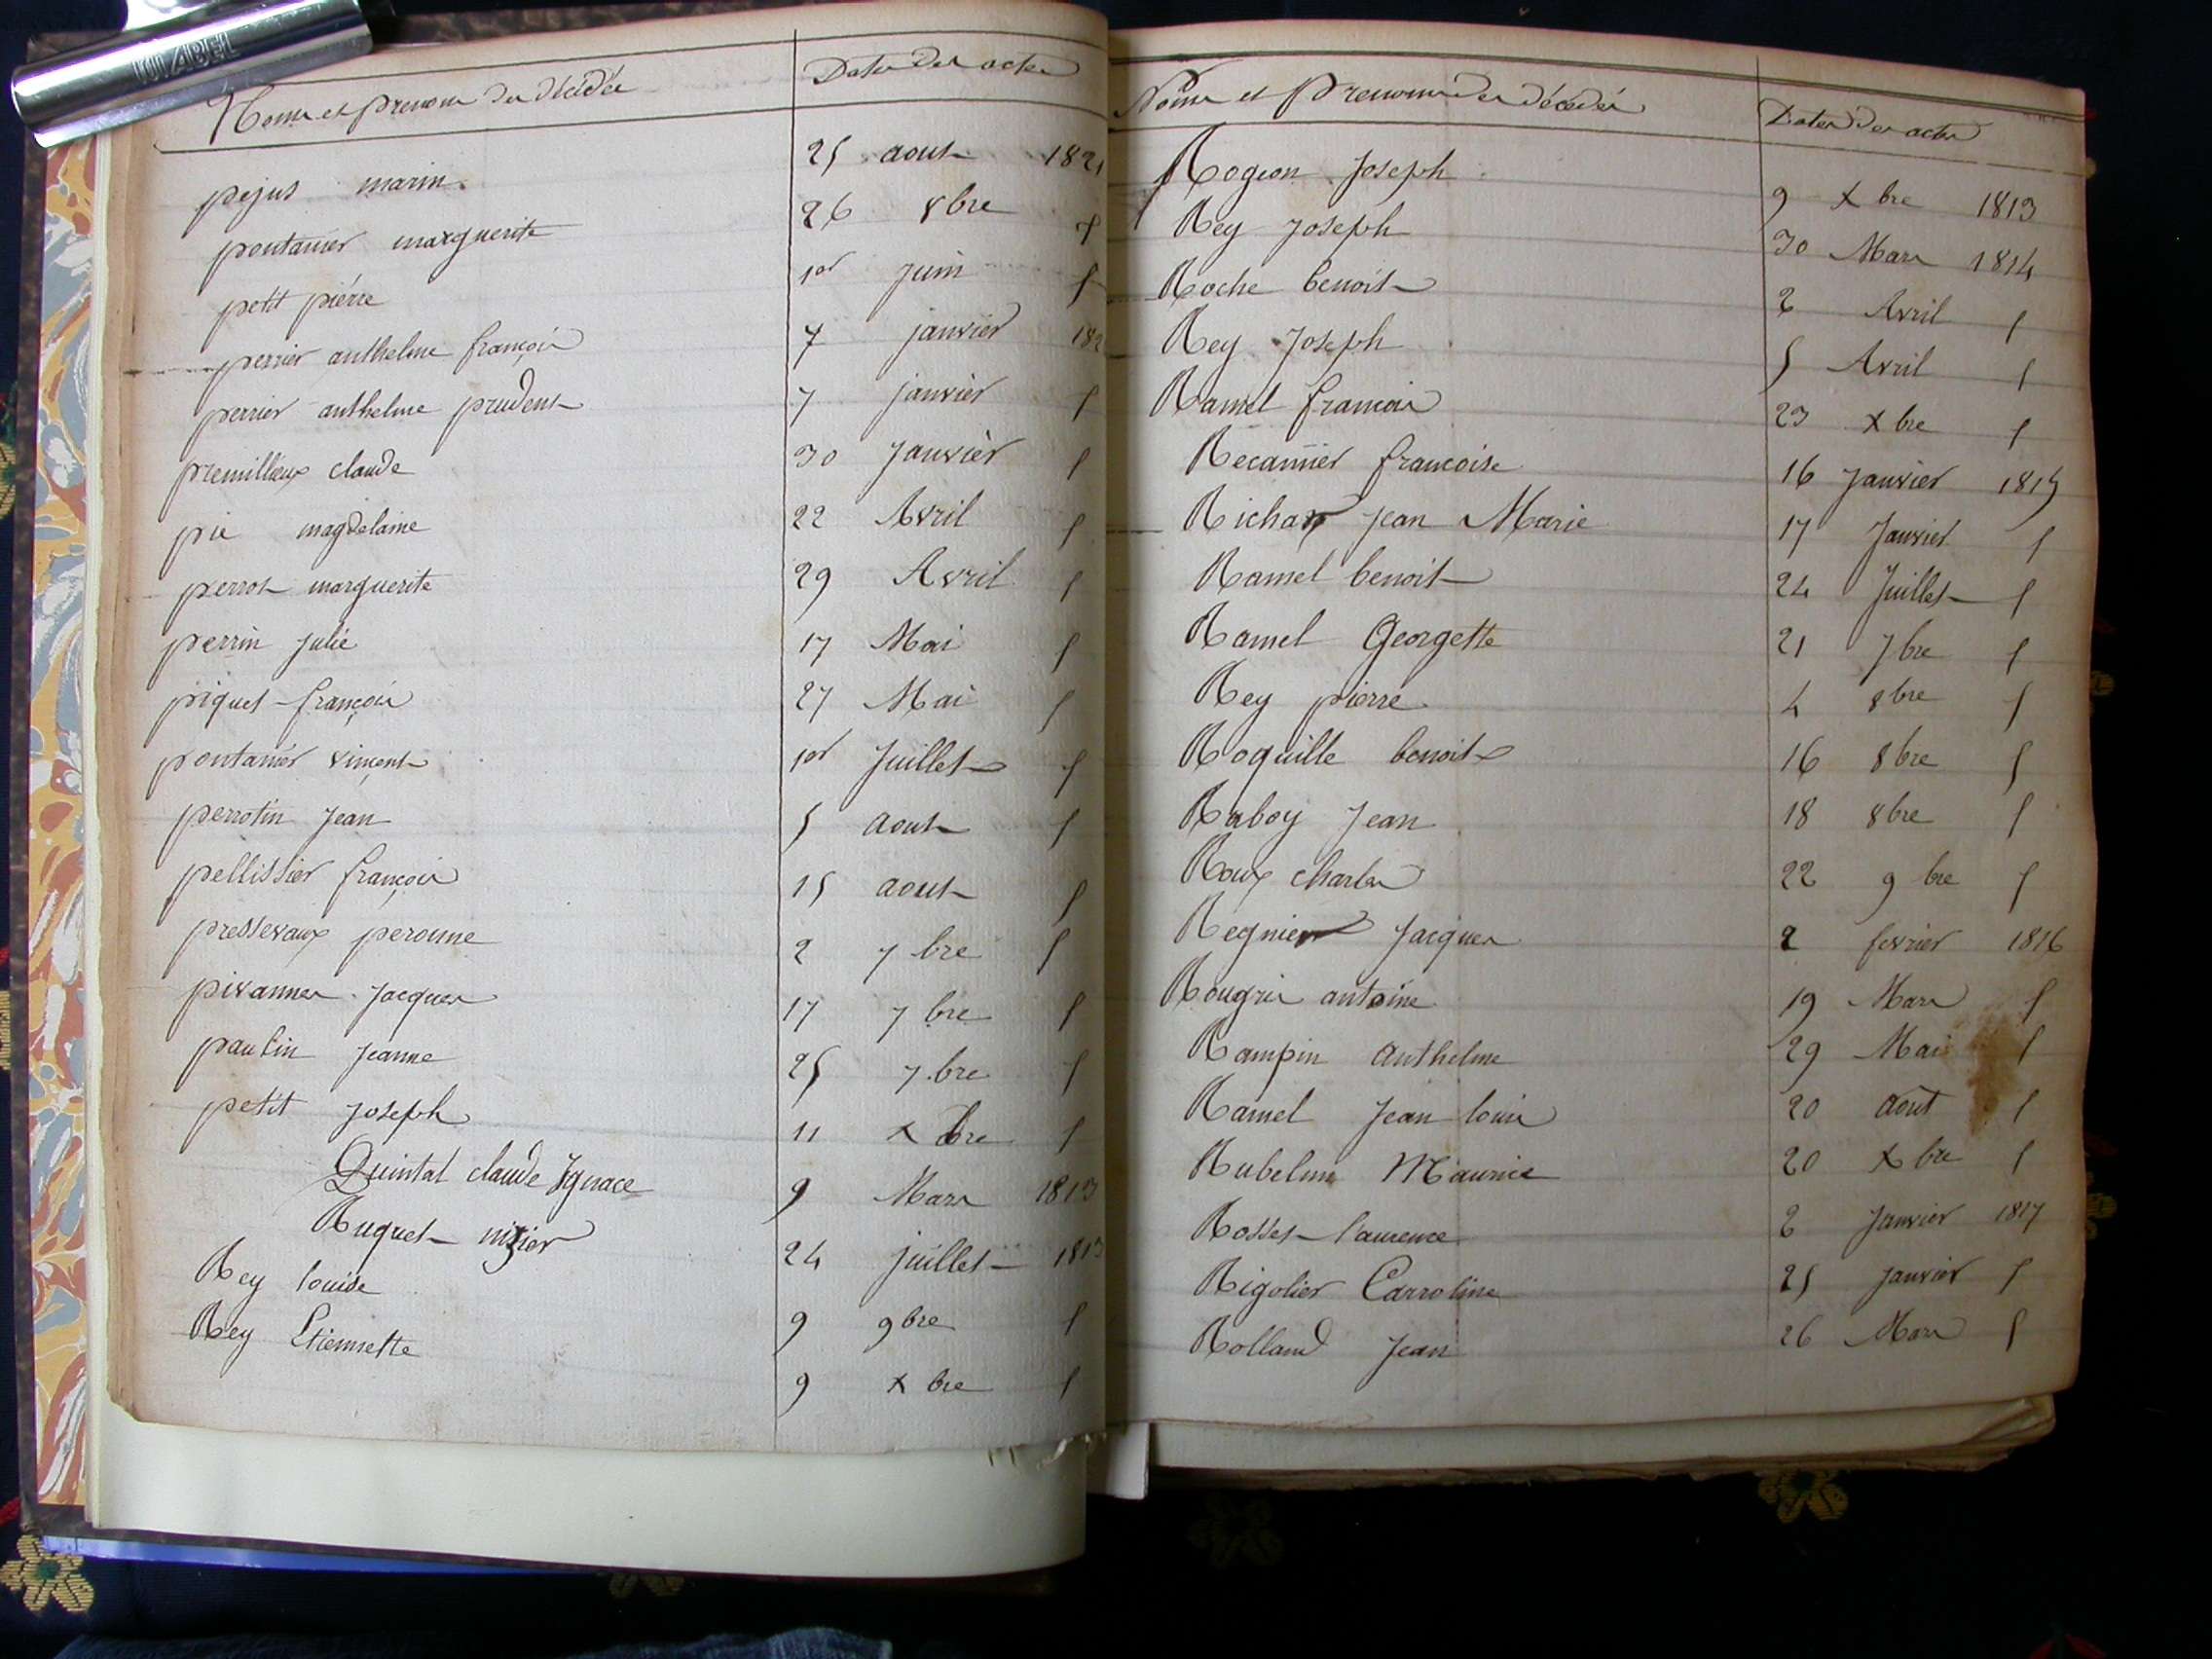 Noms et prenoms des décédés Dates des actes
pejus marin 25 aout 1821
pontanier marguerite 26 8bre
petit piérre 1er juin
perrier anthelme françois 7 janvier 182
perrier anthelme prudent 7 janvier
premillieux claude 30 Janvier
pie magdelaine 22 Avril
perrot marguerite 29 Avril
perrin julie 17 Mai
piquet françois 27 Mai
pontanier vincent 1er Juillet
perrotin Jean 5 aout
pellissier françois 15 aout
pressevaux peronne 2 7bre
pivannes Jacques 17 7bre
Jeanne 25 7bre
petit Joseph 11 xbre
Quintal claude Ignace 9 Mars 1813
Ruquet nizier 24 juillet 1813
Rey louise 9 9bre
Rey Etiennette 9 xbre
Noms et Prenoms des décédés Dates des actes
Rogeon Joseph 9 xbre 1813
Rey Joseph 30 Mars 1814
Roche benoit 2 Avril
Rey Joseph 5 Avril
Ramel francois 23 xbre
Recamier francoise 16 Janvier 1815
Richard Jean Marie 17 Janvier
Ramel benoit 24 Juillet
Ramel Georgette 21 7bre
Rey pierre 4 8bre
Roquille benoit 16 8bre
Raboy Jean 18 8bre
Roux charles 22 9bre
Regnier Jacques 2 fevrier 1816
antoine 19 Mars
Rampin anthelme 29 Mai
Ramel Jean louis 20 aout
Rubelin Maurice 20 xbre
Rosset laurence 2 Janvier 1817
Rigolier Carroline 25 Janvier
Rolland Jean 26 Mars